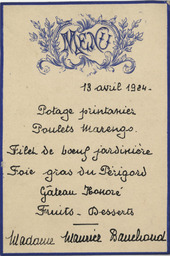 MENU
13 avril 1924.
Potage printanier
Poulets Marengo.
Filet de bœuf jardinière
Foie gras du Périgord
Gâteau Honoré
Fruits - Desserts
Madame Maurice